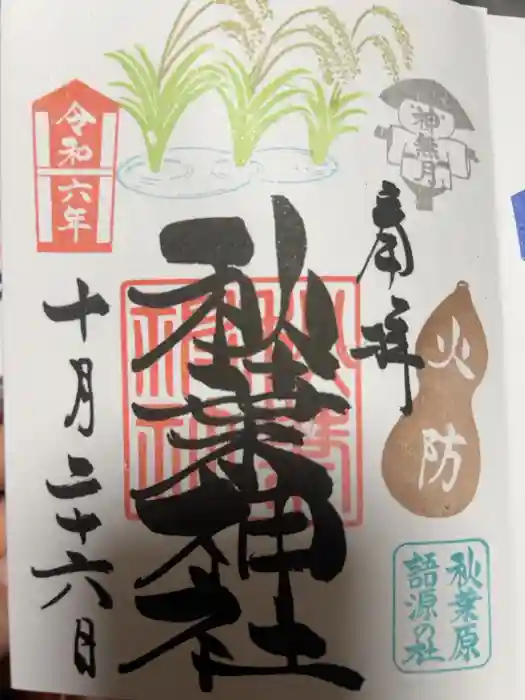 神無月
奉拝
火防
秋葉原
語源の社
秋葉神社
秋葉
神社
令和
六年
十月二十六日